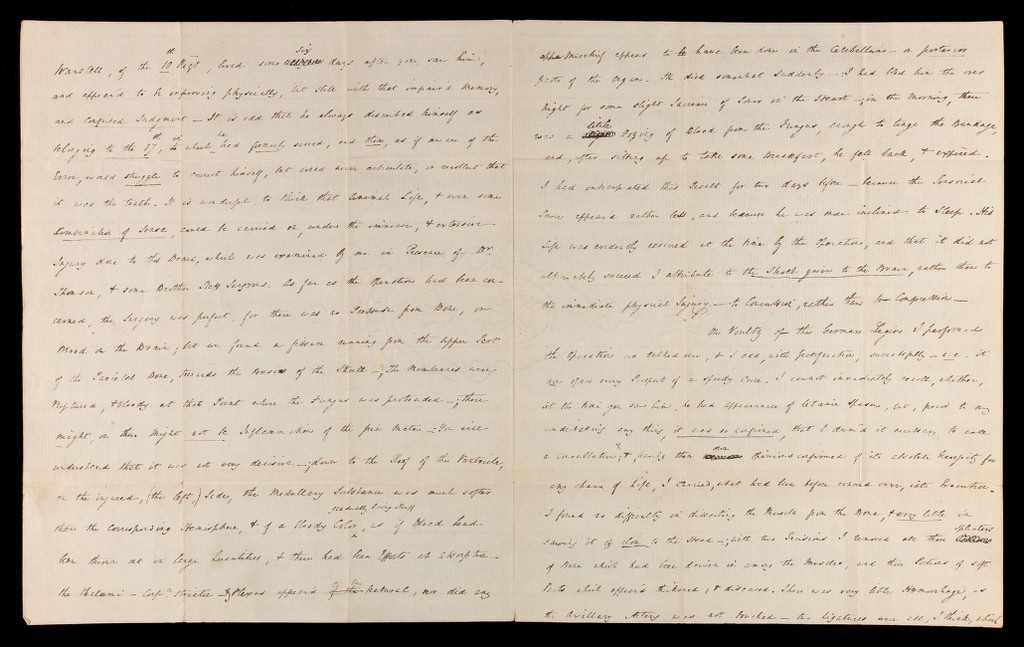 Wanstell, of the 10th Regt, lived some six days after you saw him,
and appear'd to be improving physically, but still with that impair'd Memory,
and confused Judgment — It is odd that he always described himself as
belonging to the 17th, in which he had formerly served, and then, as if aware of the
Error, would struggle to correct himself, but could never articulate, or recollect that
it was the tenth. It is wonderful to think that Animal Life, & even some
Combination of Sense, could be carried on, under the immense, & extensive
Injury done to this Brain, which was examined by me in Presence of Dr
Thomson, & some Brother Staff Surgeons. As far as the Operation had been con-
cerned, the Surgery was perfect, for there was no Pressure from Bone, or
Blood on the Brain; but we found a fissure running from the upper Part
of the Parietal Bone, towards the basis of the Skull —; The Membranes were
Ruptured, & bloody at that Point where the Fungus was protruded —; there
might, or there might not be Inflammation of the pia Mater — You will
understand that it was not very decisive —; down to the Roof of the Ventricle,
on the injured, (the left,) Side, the Medullary Substance was much softer
than the corresponding Hemisphere, & of a bloody Color, gradually going off as if Blood had
been thrown out in large Quantities, & there had been Efforts at absorption —
the Thalami — Corpa Striata & Plexus appeared natural, nor did any
mischief appear to have been done in the Cerebellum — or posterior
parts of the Organ. He died somewhat suddenly — I had bled him the over
Night for some slight Increase of Power in the Heart —; in the Morning, there
was a little Oozing of Blood from the Fungus, enough to tinge the Bandage,
and, after sitting up to take some Breakfast, he fell back, & expired.
I had anticipated this Result for two days before — because the Sensorial
Power appear'd rather less, and because he was more inclined to Sleep. His
Life was evidently rescued at the time by the Operation, and that it did not
ultimately succeed I attribute to the Shock given to the Brain, rather than to
the immediate physical Injury — to Concussion, rather than to Compression —
On Voultz of the German Legion I performed
the Operation we talked over, & I add, with satisfaction, successfully — i.e. it
has given every Prospect of a speedy Cure. I cannot immediately recollect, whether,
at the time you saw him, he had appearances of tetanic Spasm, but, prior to my
undertaking any thing, it was so confirmed, that I deem'd it necessary to call
a Consultation; &, having then our Opinions confirmed of its absolute Necessity for
any chance of Life, I carried, what had been before conned over, into Execution.
I found no difficulty in dissecting the Muscle from the Bone, & very little in
sawing it off close to the Head —; with two Incisions I removed all those splinters
of Bone which had been driven in among the Muscles, and those Portions of soft
Parts which appear'd thickened, & diseased. There was very little Hæmorrhage, as
the Axillary Artery was not touched — the ligatures were all, I think, which